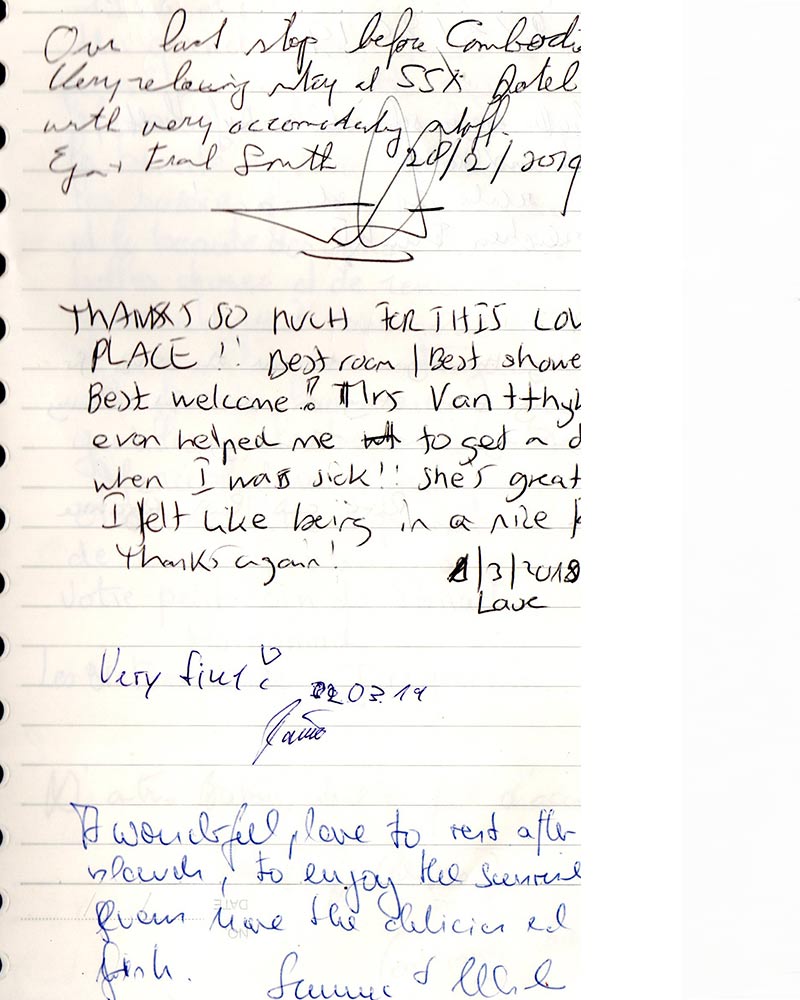 Our last stop before Cambodi
Very relaxing stay at SSX Hotel
with very accomodating staff.
South 28/2/2019
THANKS SO MUCH FOR THIS LOV
PLACE !! Best room | Best showe
Best welcome ! Mrs Van tthy
even helped me to get a d
when I was sick!! She's great
I felt like being in a nice
Thanks again!
1/3/2018
Laue
Very fine!
02.03.19
A wonderful place to rest after
to enjoy the sunrise
the delicious
fish.